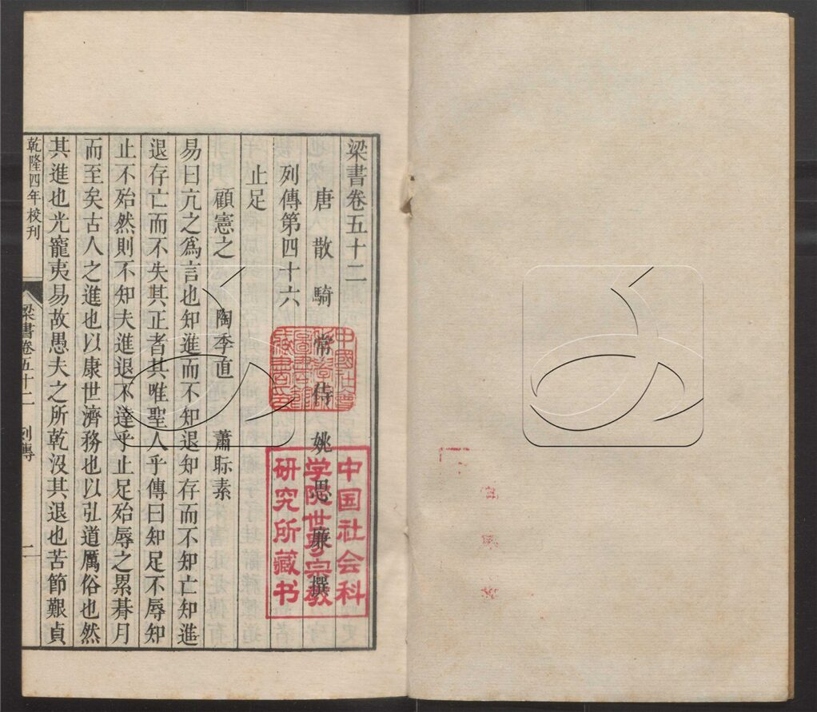 梁書卷五十二
唐散騎常侍姚思廉撰
列傳第四十六
止足
顧憲之 陶季直 蕭眎素
易曰亢之爲言也知進而不知退知存而不知亡知進
退存亡而不失其正者其唯聖人乎傳曰知足不辱知
止不殆然則不知夫進退不達乎止足殆辱之累朞月
而至矣古人之進也以康世濟務也以弘道厲俗也然
其進也光寵夷易故愚夫之所乾沒其退也苦節艱貞
乾隆四年校刊
梁書卷五十二 列傳
一
中國社會
中国社会科
学院世界宗教
研究所藏书